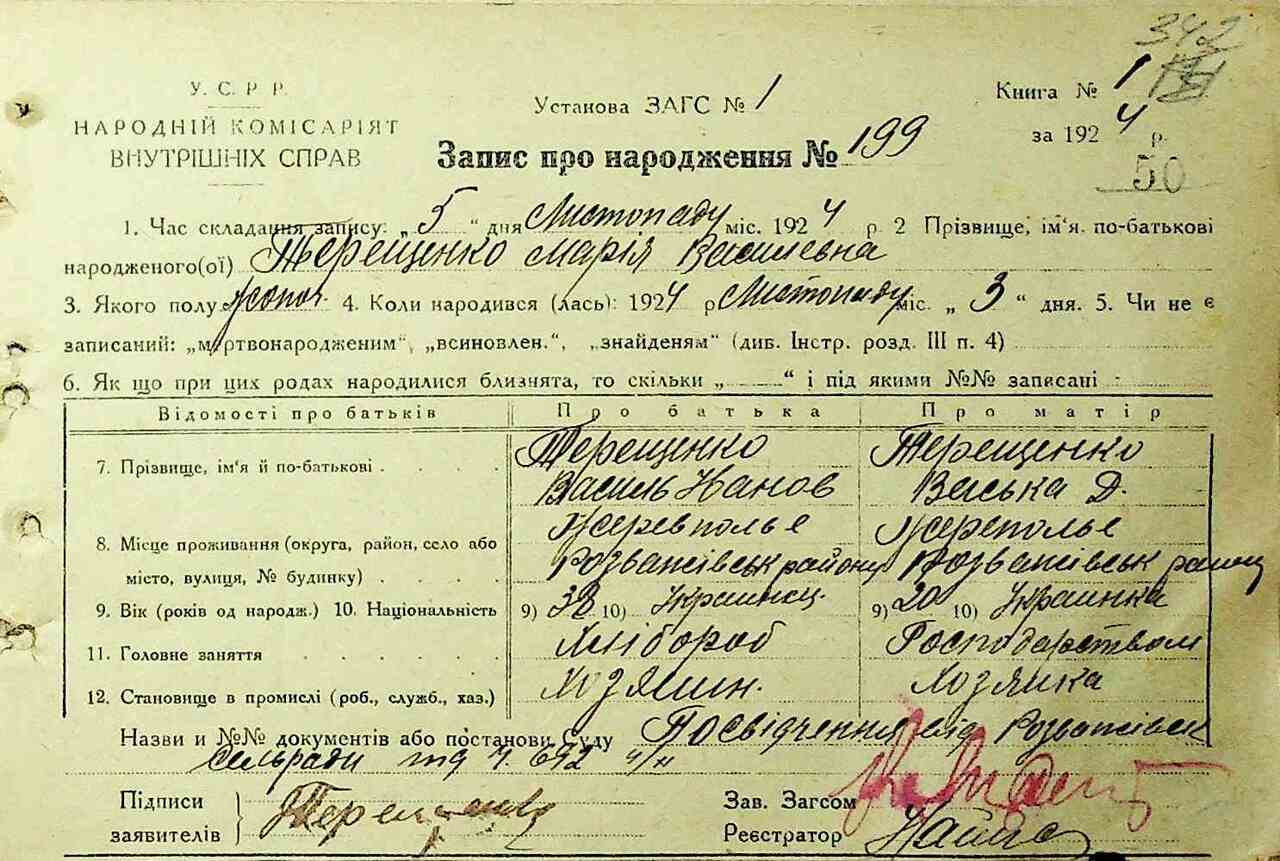 342
У. С. Р. Р.
НАРОДНІЙ КОМІСАРІЯТ
ВНУТРІШНІХ СПРАВ
Установа ЗАГС № 1
Книга № 1
за 1924 р.
50
Запис про народження № 199
1. Час складання запису: „5“ дня Листопаду міс. 1924 р 2 Прізвище, ім'я. по-батькові
народженого(ої) Терещенко Марія Василевна
3. Якого полу жоноч. 4. Коли народився (лась): 1924 р Листопаду міс. „3“ дня. 5. Чи не є
записаний: „мертвонародженим“, „всиновлен.“, „знайденям“ (див. Інстр. розд. III п. 4)
6. Як що при цих родах народилися близнята, то скільки „ “ і під якими №№ записані :
Відомості про батьків Про батька Про матір
7. Прізвище, ім'я й по-батькові . . . . Терещенко Терещенко
Василь Іванов Васька Д.
8. Місце проживання (округа, район, село або Жеревполье Жереполье
місто, вулиця, № будинку) . . . . Розважівськ району Розважівськ району
9. Вік (років од народж.) 10. Національність 9) 38 10) Украинец. 9) 20 10) Украинка
11. Головне заняття . . . . . . Хлібороб Господарством
12. Становище в промислі (роб., служб., хаз.) Хозяин. Хозяйка
Назви и №№ документів або постанови Суду Посвідчення від Розважівськ
Сельради під ч. 692
Підписи
заявителів
Терещенко
Зав. Загсом
Реєстратор